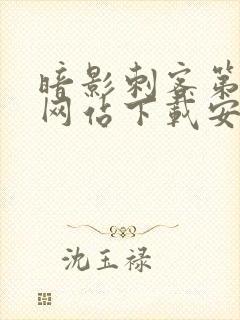 暗影刺客第
网站下载安
沈玉禄